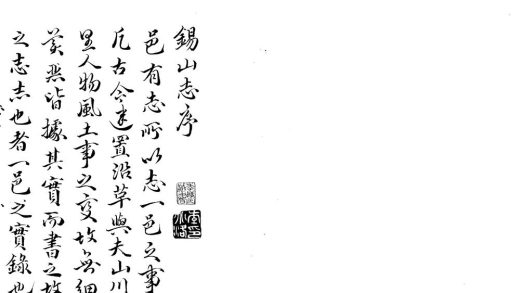 錫山志序
邑有志所以志一邑之事
凡古今建置沿草與夫山川
里人物風土事之变故無細
美惡皆據其實而書之故
之志志也者一邑之實錄也